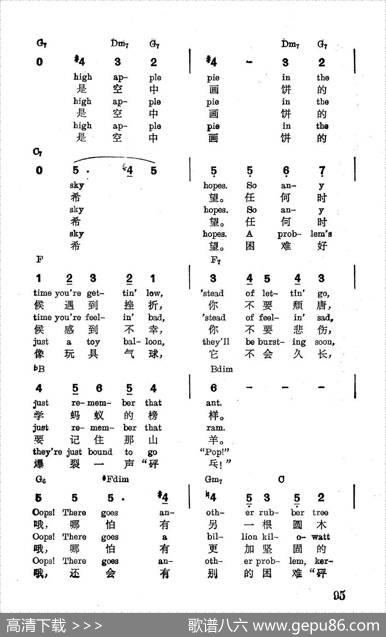 G7 Dm7 G7 Dm7 G7
0 #4 3 2 #4 - 3 2
high ap- ple pie in the
是 空 中 画 饼 的
是 空 中 画 饼 的
high ap- ple pie in the
是 空 中 画 饼 的
C7
0 5 · #4 5 5 5 6 7
sky hopes. So an- y
希 望。 任 何 时
sky hopes. So an- y
希 望。 任 何 时
sky hopes. A prob- lem's
希 望。 困 难 好
F F7
1 2 3 2 1 3 4 5 4 3
time you're get- tin' low, 'stead of let- tin' go,
候 遇 到 挫 折, 你 不 要 颓 唐,
time you're feel- in' bad, 'stead of feel- in' sad,
候 感 到 不 幸, 你 不 要 悲 伤,
just a toy bal- loon, they'll be burst- ing soon,
像 玩 具 气 球, 它 不 会 久 长,
bB Bdim
4 5 6 5 4 6 - - -
just re- mem- ber that ant.
学 蚂 蚁 的 榜 样。
just re- mem- ber that ram.
要 记 住 那 山 羊。
they're just bound to go "Pop!"
爆 裂 一 声 “砰 乓!”
G6 #Fdim Gm7 C
5 5 5 · #4 ♮4 5 3 5 2
Oops! There goes an- oth- er rub- ber tree
哦, 哪 怕 有 另 一 根 圆 木
Oops! There goes a bil- lion kil- o- watt
哦, 哪 怕 有 更 加 坚 固 的
Oops! There goes an- oth- er prob- lem, ker-
哦, 还 会 有 别 的 困 难 “砰
95
高清下载 >>> 歌谱八六 www.gepu86.com